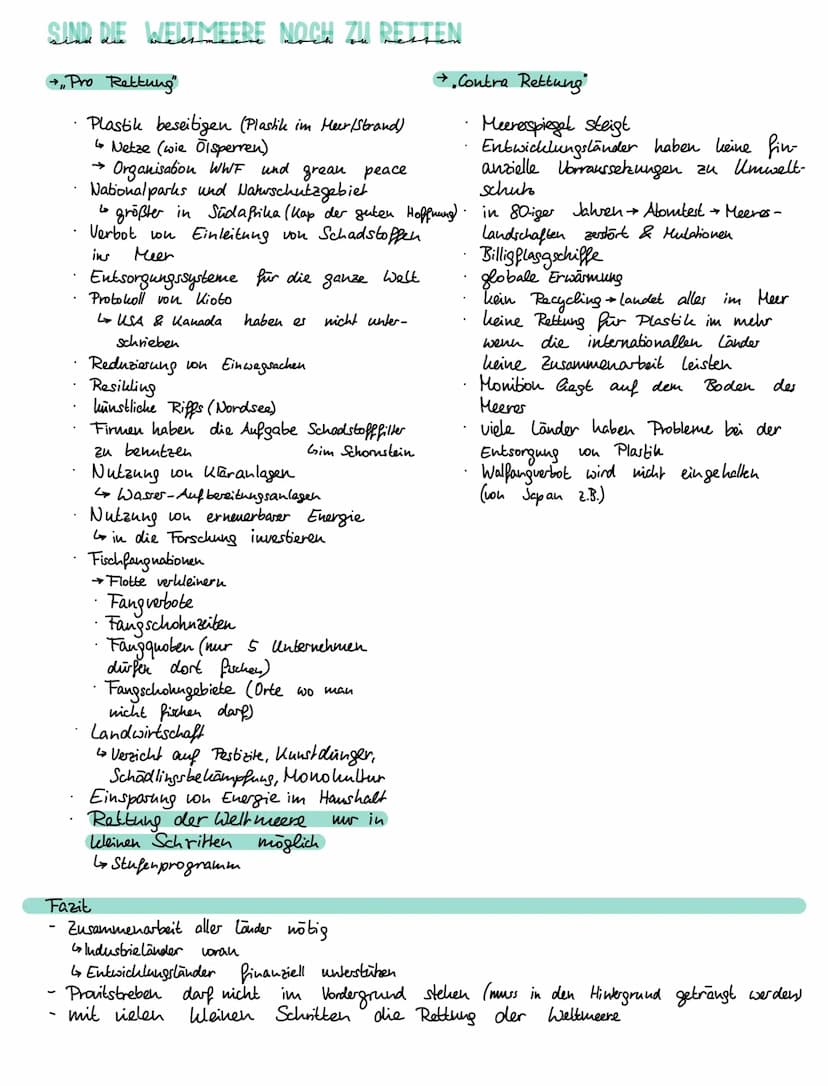 SIND DIE WELTMEERE NOCH ZU RETTEN
sind die weltmeere noch zu retten
→ „Pro Rettung"
· Plastik beseitigen (Plastik im Meer/Strand)
↳ Netze (wie Ölsperren)
→ Organisation WWF und grean peace
· Nationalparks und Naturschutzgebiet
↳ größter in Südafrika (Kap der guten Hoffnung)
· Verbot von Einleitung von Schadstoffen
ins Meer
· Entsorgungssysteme für die ganze Welt
· Protokoll von Kioto
↳ USA & Kanada haben es nicht unter-
schrieben
· Reduzierung von Einwegsachen
· Resikling
· künstliche Riffs (Nordsee)
· Firmen haben die Aufgabe Schadstofffilter
zu benutzen ↳ im Schornstein
· Nutzung von Kläranlagen
↳ Wasser-Aufbereitungsanlagen
· Nutzung von erneuerbarer Energie
↳ in die Forschung investieren
· Fischfangnationen
→ Flotte verkleinern
· Fangverbote
· Fangschohnzeiten
· Fangquoten (nur 5 Unternehmen
dürfen dort fischen)
· Fangschohngebiete (Orte wo man
nicht fischen darf)
· Landwirtschaft
↳ Verzicht auf Pestizite, Kunstdünger,
Schädlingsbekämpfung, Monokultur
· Einsparung von Energie im Haushalt
· Rettung der Weltmeere nur in
kleinen Schritten möglich
↳ Stufenprogramm
→ „Contra Rettung"
· Meeresspiegel steigt
· Entwicklungsländer haben keine fin-
anzielle Vorraussetzungen zu Umwelt-
schutz
· in 80-iger Jahren → Atomtest → Meeres-
landschaften zerstört & Mutationen
· Billigflaggschiffe
· globale Erwärmung
· kein Recycling → landet alles im Meer
· keine Rettung für Plastik im mehr
wenn die internationallen Länder
keine Zusammenarbeit leisten
· Monition liegt auf dem Boden des
Meeres
· viele Länder haben Probleme bei der
Entsorgung von Plastik
· Walfangverbot wird nicht eingehalten
(von Japan z.B.)
Fazit
- Zusammenarbeit aller Länder nötig
↳ Industrieländer voran
↳ Entwicklungsländer finanziell unterstützen
- Provitstreben darf nicht im Vordergrund stehen (muss in den Hintergrund geträngt werden)
- mit vielen kleinen Schritten die Rettung der Weltmeere